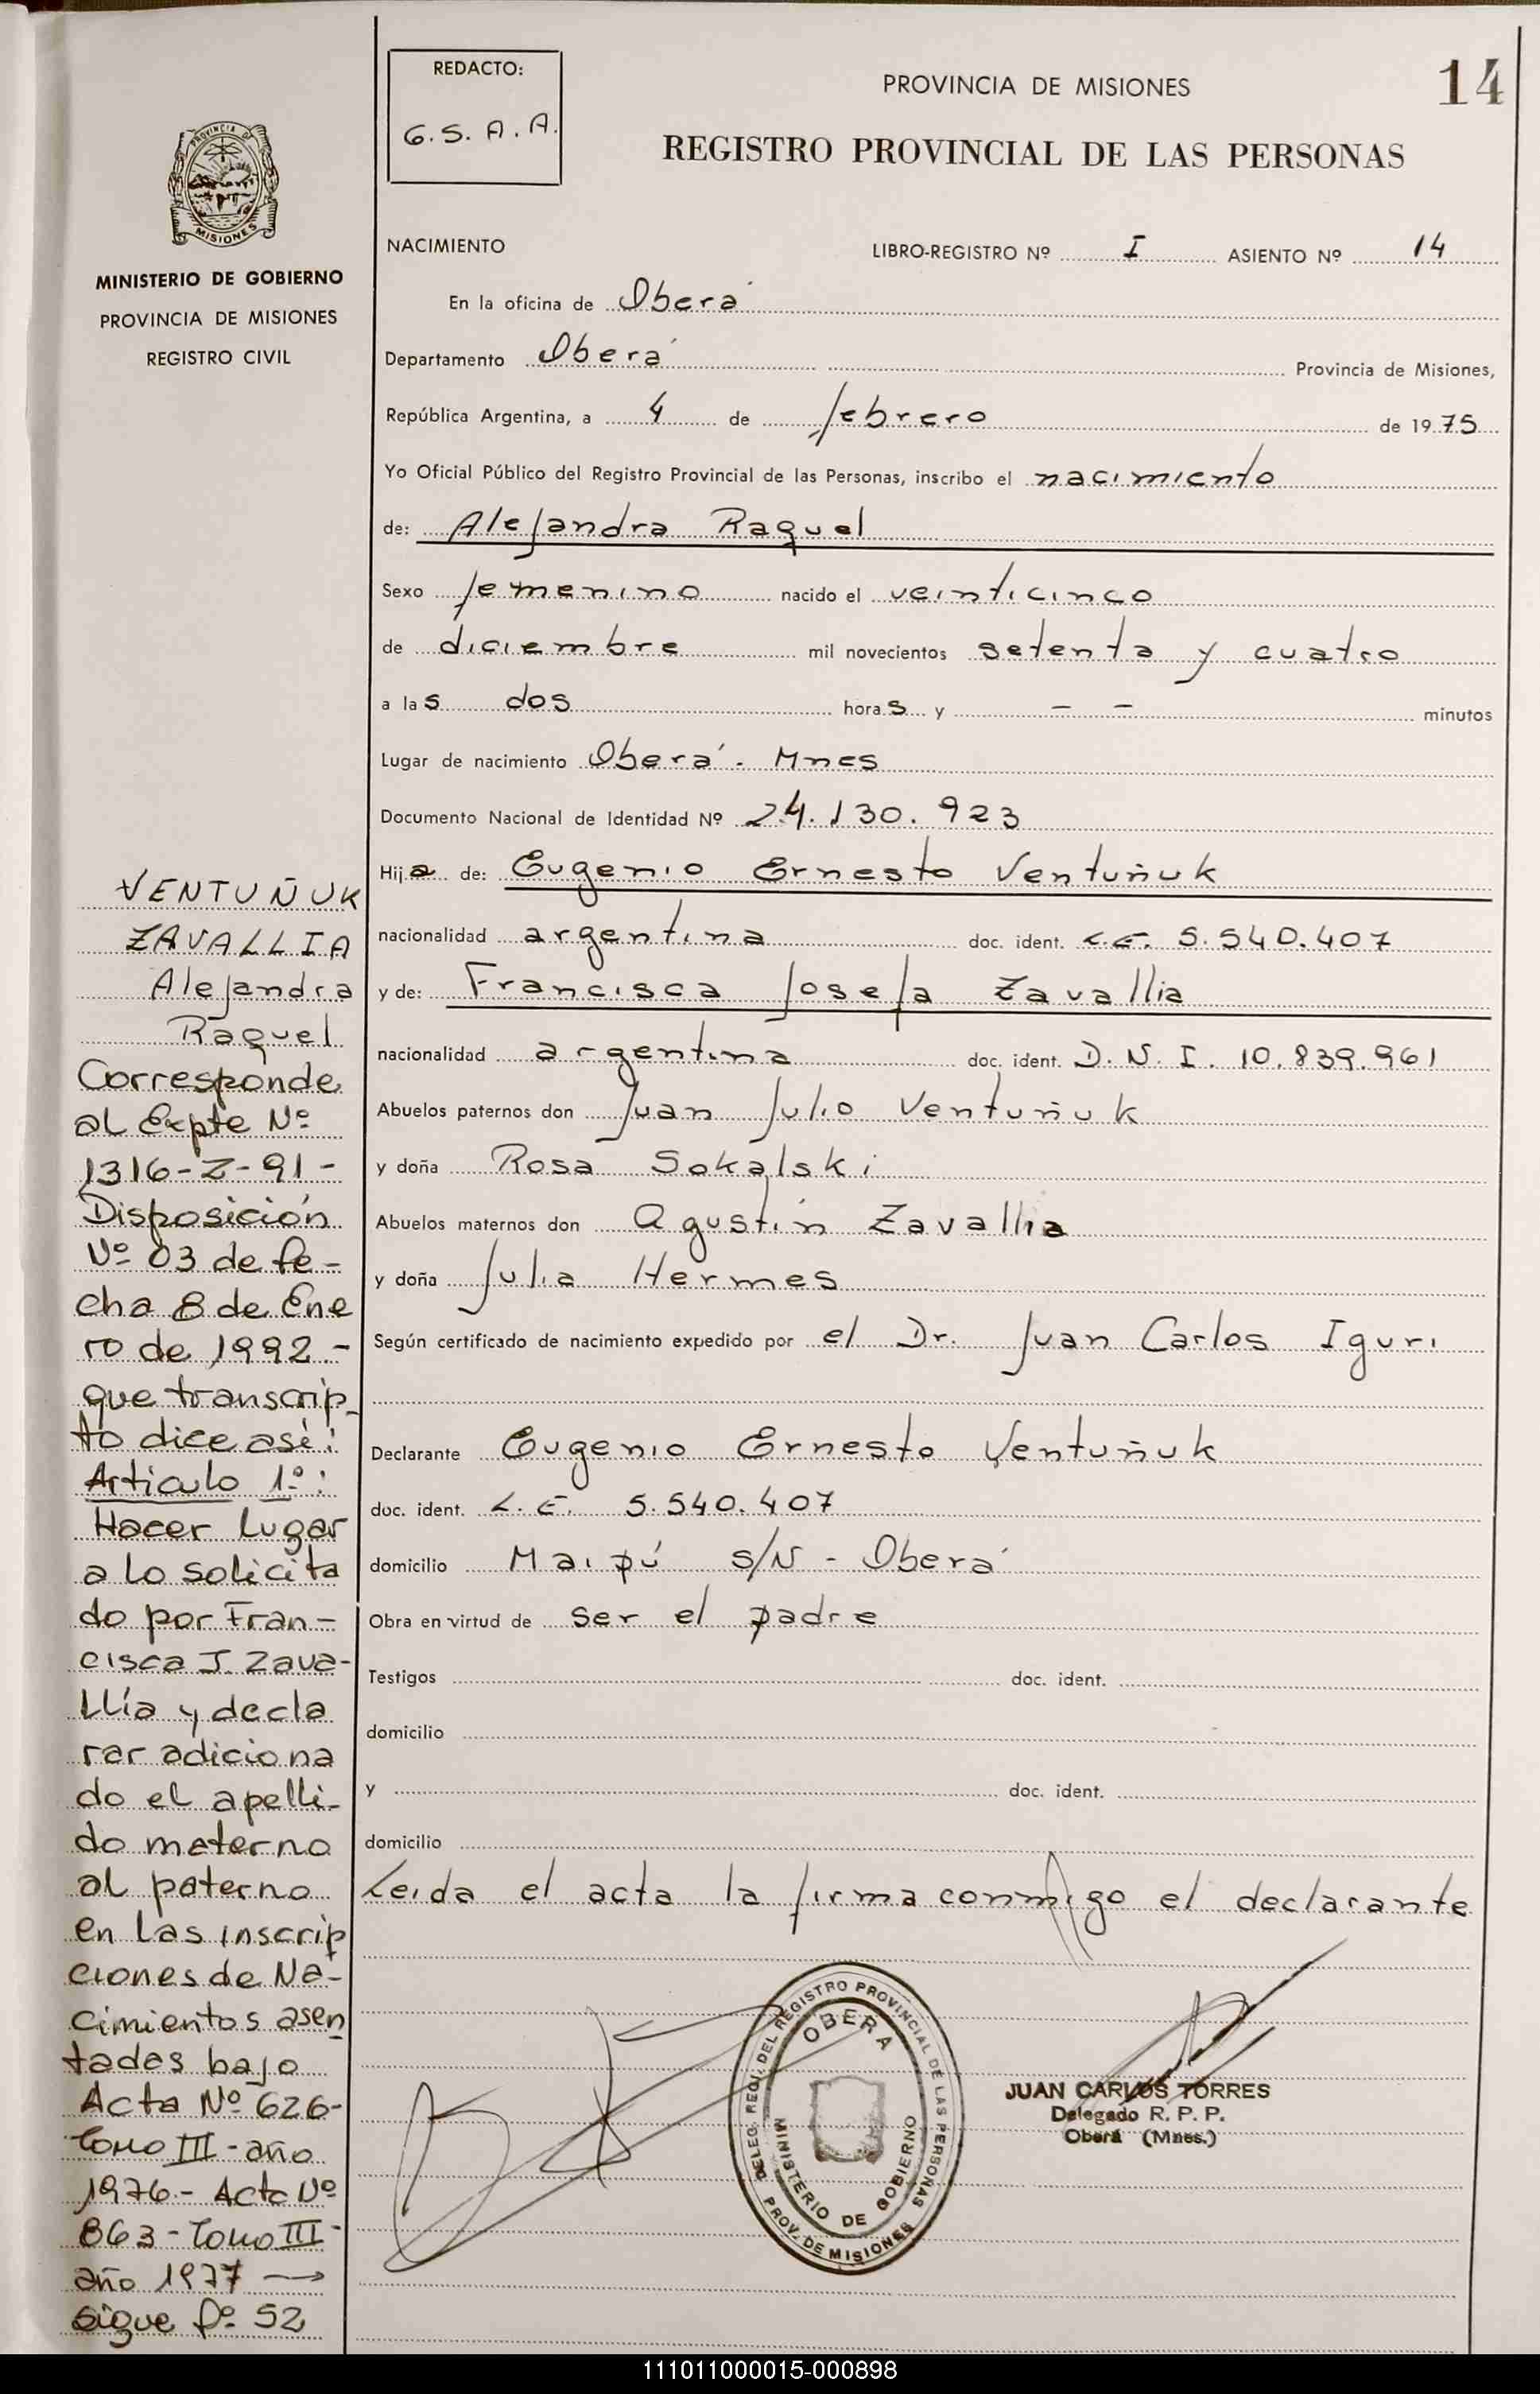 REDACTO:
G. S. A. A.
PROVINCIA DE MISIONES
14
REGISTRO PROVINCIAL DE LAS PERSONAS
PROVINCIA DE
MISIONES
MINISTERIO DE GOBIERNO
PROVINCIA DE MISIONES
REGISTRO CIVIL
NACIMIENTO
LIBRO-REGISTRO Nº I ASIENTO Nº 14
En la oficina de Oberá
Departamento Oberá Provincia de Misiones,
República Argentina, a 4 de febrero de 1975
Yo Oficial Público del Registro Provincial de las Personas, inscribo el nacimiento
de: Alejandra Raquel
Sexo femenino nacido el veinticinco
de diciembre mil novecientos setenta y cuatro
a las dos horas y - - minutos
Lugar de nacimiento Oberá - Mnes
Documento Nacional de Identidad Nº 24.130.923
Hija de: Eugenio Ernesto Ventuñuk
nacionalidad argentina doc. ident. L.E. 5.540.407
y de: Francisca Josefa Zavallia
nacionalidad argentina doc. ident. D.N.I. 10.839.961
Abuelos paternos don Juan Julio Ventuñuk
y doña Rosa Sokalski
Abuelos maternos don Agustín Zavallia
y doña Julia Hermes
Según certificado de nacimiento expedido por el Dr. Juan Carlos Iguri
Declarante Eugenio Ernesto Ventuñuk
doc. ident. L.E. 5.540.407
domicilio Maipú s/N - Oberá
Obra en virtud de ser el padre
Testigos doc. ident.
domicilio
y doc. ident.
domicilio
Leida el acta la firma conmigo el declarante
DELEG. REGI. DEL REGISTRO PROVINCIAL DE LAS PERSONAS
OBERA
MINISTERIO DE GOBIERNO
PROV. DE MISIONES
JUAN CARLOS TORRES
Delegado R. P. P.
Oberá (Mnes.)
VENTUÑUK
ZAVALLIA
Alejandra
Raquel
Corresponde
al Expte Nº
1316-Z-91-
Disposición
Nº 03 de fe-
cha 8 de Ene
ro de 1992-
que transcrip-
to dice así:
Articulo 1º:
Hacer Lugar
a lo solicita
do por Fran-
cisca J. Zava-
llía y decla
rar adiciona
do el apelli-
do materno
al paterno
en las inscrip
ciones de Na-
cimientos asen
tadas bajo
Acta Nº 626-
Tomo III-año
1976- Acta Nº
863- Tomo III-
año 1977 →
sigue fº 52
111011000015-000898